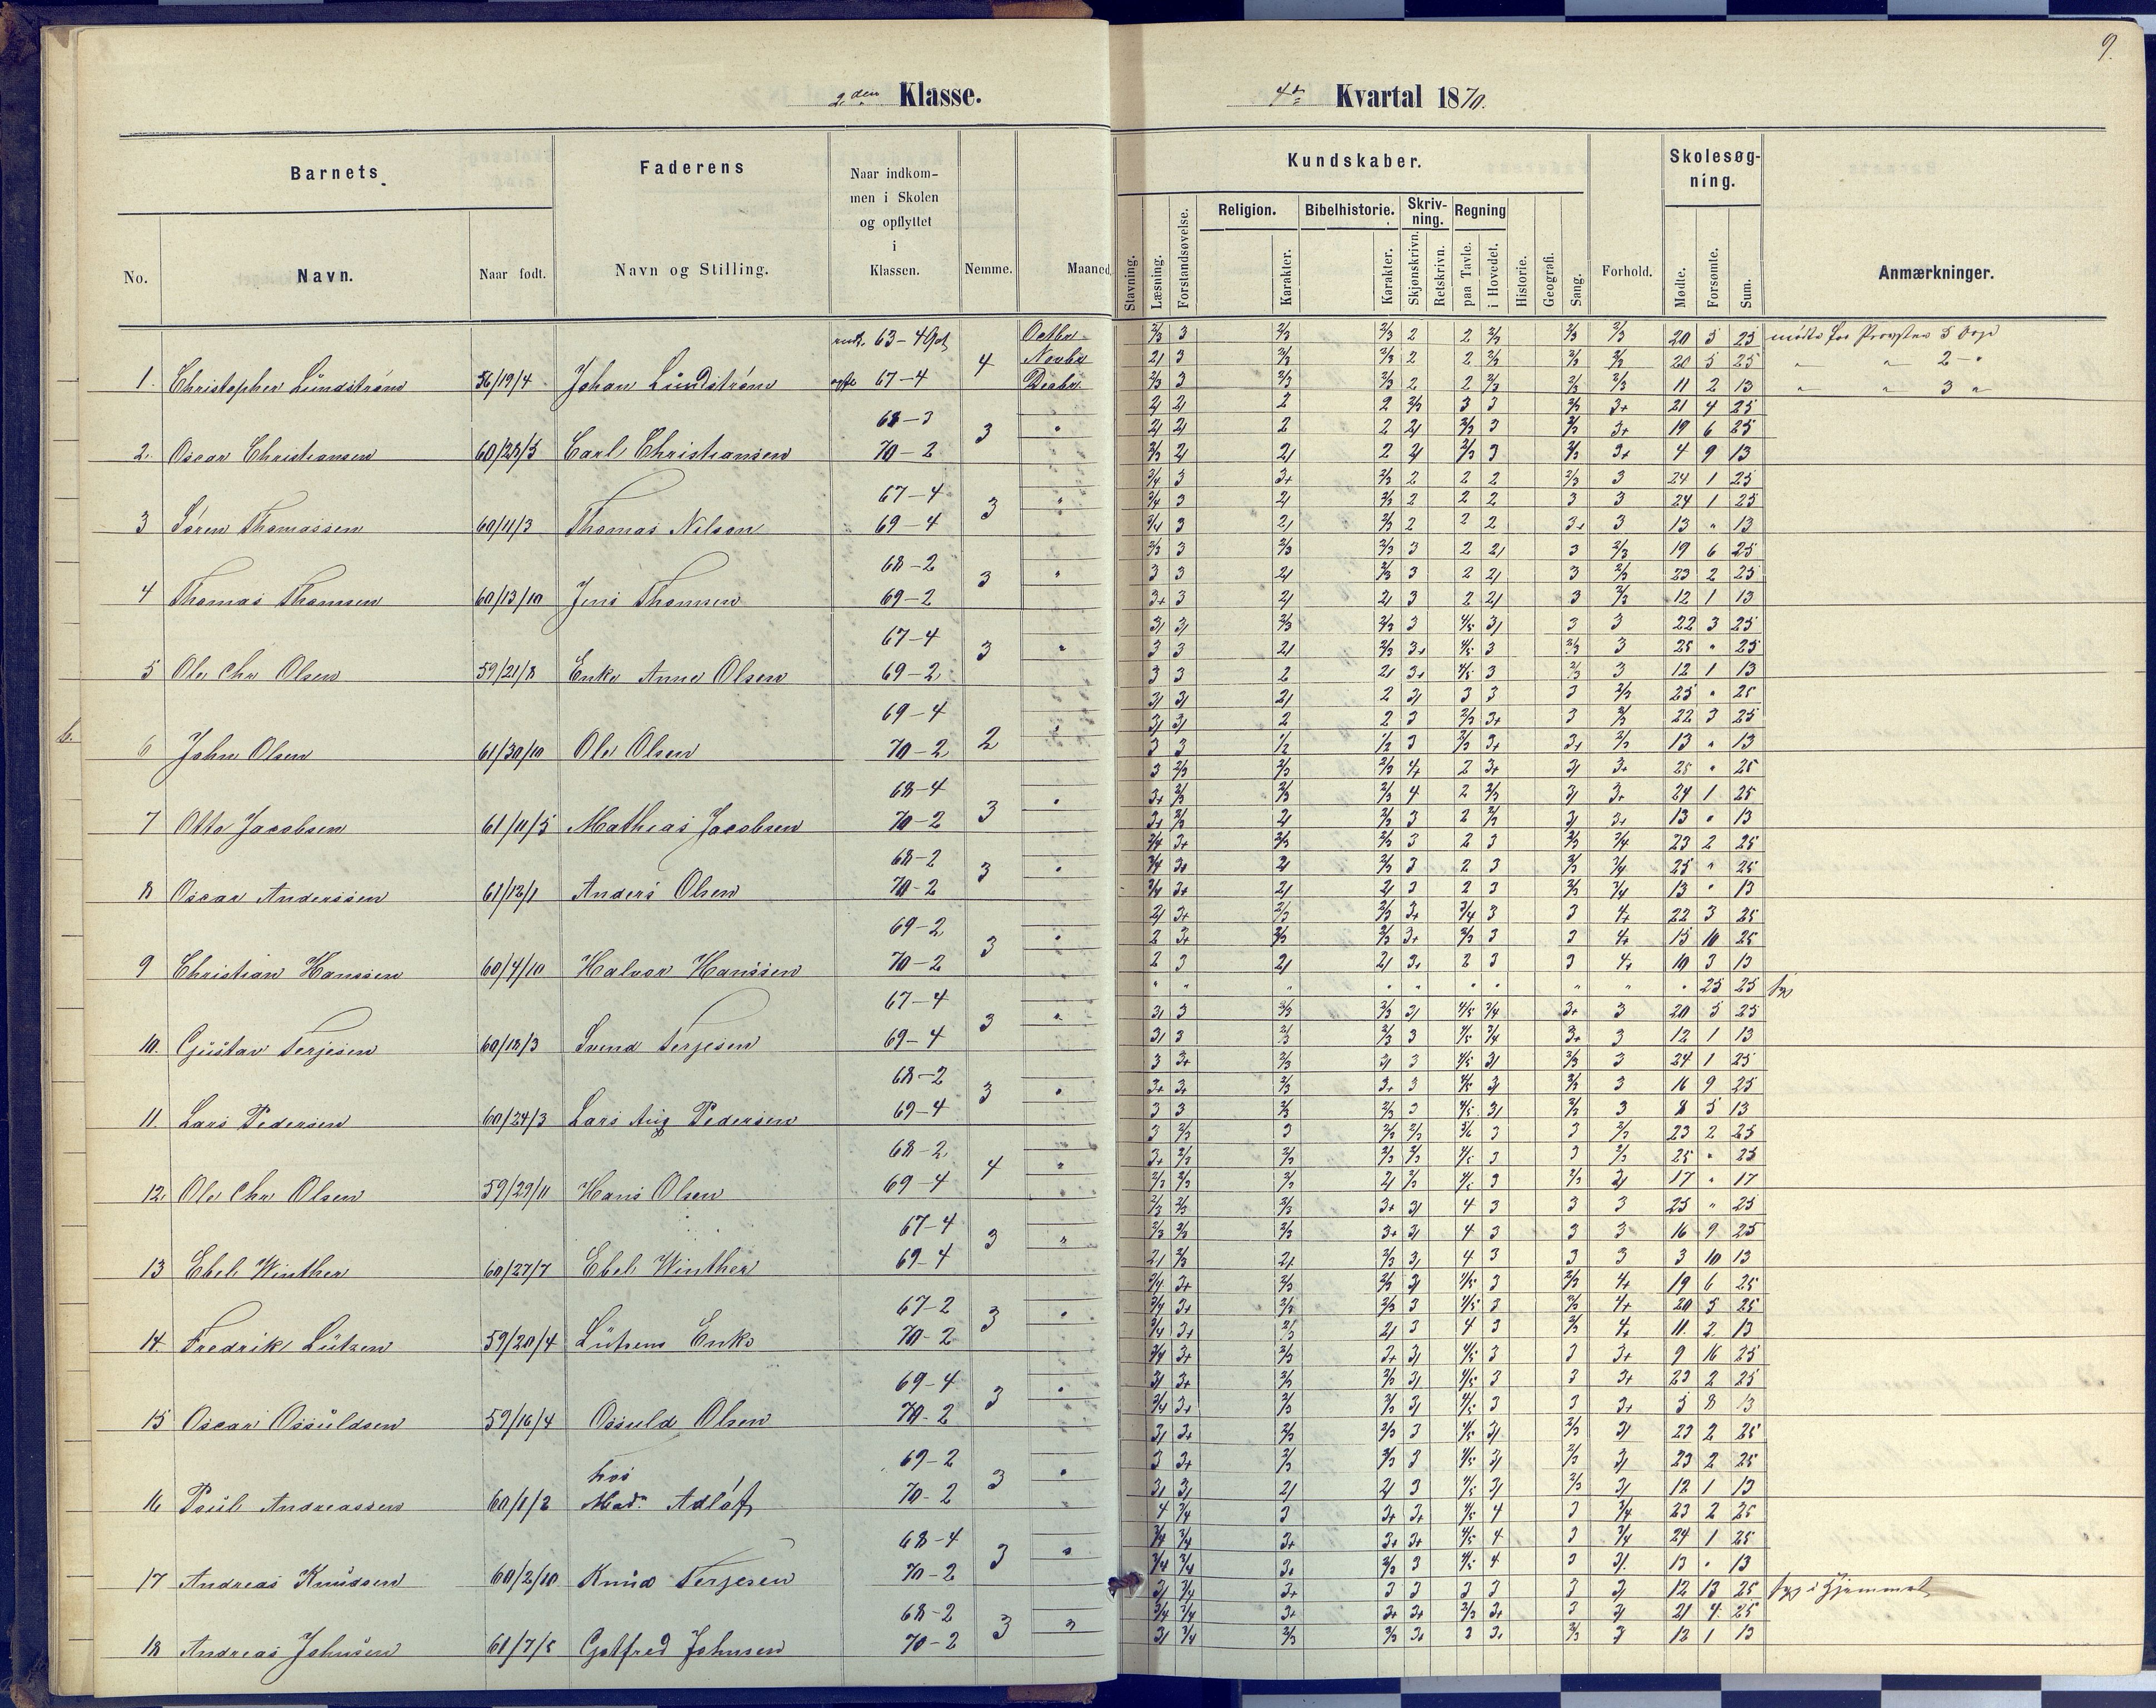 9.
2den Klasse.
4de Kvartal 1870.
Barnets
Faderens
Naar indkom-
men i Skolen
og opflyttet
i
Klassen.
Nemme.
Maaned
Kundskaber.
Skolesøg-
ning.
No.
Navn.
Naar født.
Navn og Stilling.
Stavning.
Læsning.
Forstandsøvelse.
Religion.
Karakter.
Bibelhistorie.
Karakter.
Skriv-
ning.
Skjønskrivn.
Retskrivn.
Regning
paa Tavle.
i Hovedet.
Historie.
Geografi.
Sang.
Forhold.
Mødte.
Forsømte.
Sum.
Anmærkninger.
1. Christopher Lundstrøm 56/19/4 Johan Lundstrøm 63-4 67-4 4
Octbr 2/3 3 2/3 2/3 2 2 2/3 2/3 2/3 20 5 25
Novbr 2/ 3 2/3 2/3 2 2 2/3 2/3 2/3 20 5 25
Decbr 2/3 3 2/3 2/3 2 2 2/3 2/3 2/3 11 2 13
2. Oscar Christiansen 60/28/5 Carl Christiansen 68-3 70-2 3
2/ 2/ 2 2 2/3 3 3 2/3 3+ 21 4 25
2/ 2/ 2 2 2/ 2/3 3 2/3 3+ 19 6 25
2/3 2/ 2/ 2 2/ 2/3 3 2/3 3+ 4 9 13
3 Søren Thomassen 60/11/3 Thomas Nilson 67-4 69-4 3
3/4 3 3+ 2/3 2 2 2 2/3 3 24 1 25
3/4 3 2/ 2/3 2 2 2 3 3 24 1 25
3/4 3 2/ 2/3 2 2 2 3+ 3 13 " 13
4 Thomas Thomsen 60/13/10 Jens Thomsen 68-2 69-2 3
2/3 3 2/3 2/3 3 2 2/ 3 2/3 19 6 25
3 3 2/ 2/3 3 2 2/ 3 2/3 23 2 25
3+ 3 2/ 2/ 3 2 2/ 3 2/3 12 1 13
5 Ole Chr Olsen 59/21/8 Enke Anne Olsen 67-4 69-2 3
3/ 3/ 2/3 2/3 3 4/5 3/ 3 3 22 3 25
3 3 2/ 2/3 3+ 4/5 3 2/3 3 25 " 25
3 3 2 2/ 3+ 4/5 3 2/3 3 12 1 13
6 John Olsen 61/30/10 Ole Olsen 69-4 70-2 2
3/ 3/ 2/ 2 3/ 3 3 3 2/3 25 " 25
3/ 3/ 2 2 3 2/3 3+ 3 2/3 22 3 25
3 3 1/2 1/2 3 2/3 3+ 3+ 2/3 13 " 13
7 Otto Jacobsen 61/11/5 Mathias Jacobsen 68-4 70-2 3
3 2/3 2/3 2/3 4+ 2 3+ 3/ 3+ 25 " 25
3+ 2/3 2/3 2/3 4 2 2/3 3/ 3+ 24 1 25
3+ 2/3 2/ 2/3 3 2 2/3 3/ 3+ 13 " 13
8 Oscar Anderssen 61/12/1 Anders Olsen 68-2 70-2 3
3/4 3+ 2/3 2/3 3 2 3 2/3 3/4 23 2 25
3/4 3+ 2/ 2/3 3 2 3 2/3 3/4 25 " 25
3/4 3+ 2/ 2/ 3 2 3 2/3 3/4 13 " 13
9 Christian Hanssen 60/4/10 Halvor Hanssen 69-2 70-2 3
2/ 3+ 2/3 2/3 3+ 3/4 3 3 4+ 22 3 25
2 3+ 2/3 2/3 3+ 2/3 3 3 4+ 15 10 25
2 3 2/ 2/ 3+ 2 3 3 4+ 10 3 13
10. Gustav Terjesen 60/18/3 Svend Terjesen 67-4 69-4 3
" " " " " " " " " " 25 25 syg
3/ 3 2/3 2/3 3/ 4/5 3/4 3+ 3 20 5 25
3/ 3 2/3 2/3 3 4/5 3/4 3+ 3 12 1 13
11. Lars Pedersen 60/24/3 Lars Aug Pedersen 68-2 69-4 3
3 3+ 2/3 3/ 3 4/5 3/ 2/3 3 24 1 25
3+ 3+ 2/3 3+ 3 4/5 3/ 2/3 3 16 9 25
3 3 2/3 2/3 3 4/5 3/ 2/3 3 8 5 13
12. Ole Chr Olsen 59/29/11 Hans Olsen 68-2 69-4 4
3 2/3 3 2/3 2/3 5/6 3 3 2/3 23 2 25
3+ 2/3 2/3 2/3 2/3 4/5 3 3 2/3 25 " 25
2/3 2/3 2/3 2/ 2/3 4/5 3 2/3 2/ 17 " 17
13 Ebel Winther 60/27/7 Ebel Winther 67-4 69-4 3
2/3 2/3 2/3 3+ 3/ 4 3 3 3 25 " 25
2/3 2/3 2/3 3+ 3/ 4 3 3 3 16 9 25
2/ 2/3 2+ 2/3 3/ 4 3 3 3 3 10 13
14. Fredrik Lützen 59/20/4 Lützens Enke 67-2 70-2 3
3/4 3+ 2/3 2/3 3/ 4/5 3 2/3 4+ 19 6 25
3/4 3+ 2/3 2/3 3 4/5 3 2/3 4+ 20 5 25
3/4 3+ 2/3 2/ 3 4 3 2/3 4+ 11 2 13
15 Oscar Ossuldsen 59/16/4 Ossuld Olsen 69-4 70-2 3
3/4 3+ 2/3 3+ 3/ 4/5 3 3 3+ 9 16 25
3/ 3+ 2/3 2/3 3/ 4/5 3 3 3+ 23 2 25
3/4 3+ 2/3 2/3 3/ 4/5 3 3 3+ 5 8 13
16 Poul Andreassen 60/1/2 hos Mad. Adlof 69-2 70-2 3
3/ 3+ 2/3 2/3 3 4/5 3/ 2/3 3/ 23 2 25
3 3+ 2/3 2/3 3 4/5 3/ 2/3 3/ 23 2 25
3/ 3/ 2/ 2/ 3 4/5 3/ 2/3 3/ 12 1 13
17 Andreas Knudsen 60/2/10 Knud Terjesen 68-4 70-2 3
4 3/4 3 3+ 3+ 4/5 4 3 3/4 23 2 25
3/4 3/4 3+ 3+ 3+ 4/5 4 3 3/4 24 1 25
3/4 3/4 3+ 2/3 3 4/5 4 3 3/ 13 " 13
18 Andreas Johnsen 61/7/5 Gotfred Johnsen 68-2 70-2 3
3/ 3/4 3+ 3 3 3 3 3 3/ 12 13 25 syg i Hjemmet
3/4 3/4 3+ 3+ 3+ 2/3 3+ 3 3/ 21 4 25
3/ 3/4 2/3 2/3 3+ 3 3+ 2/3 3/ 12 1 13